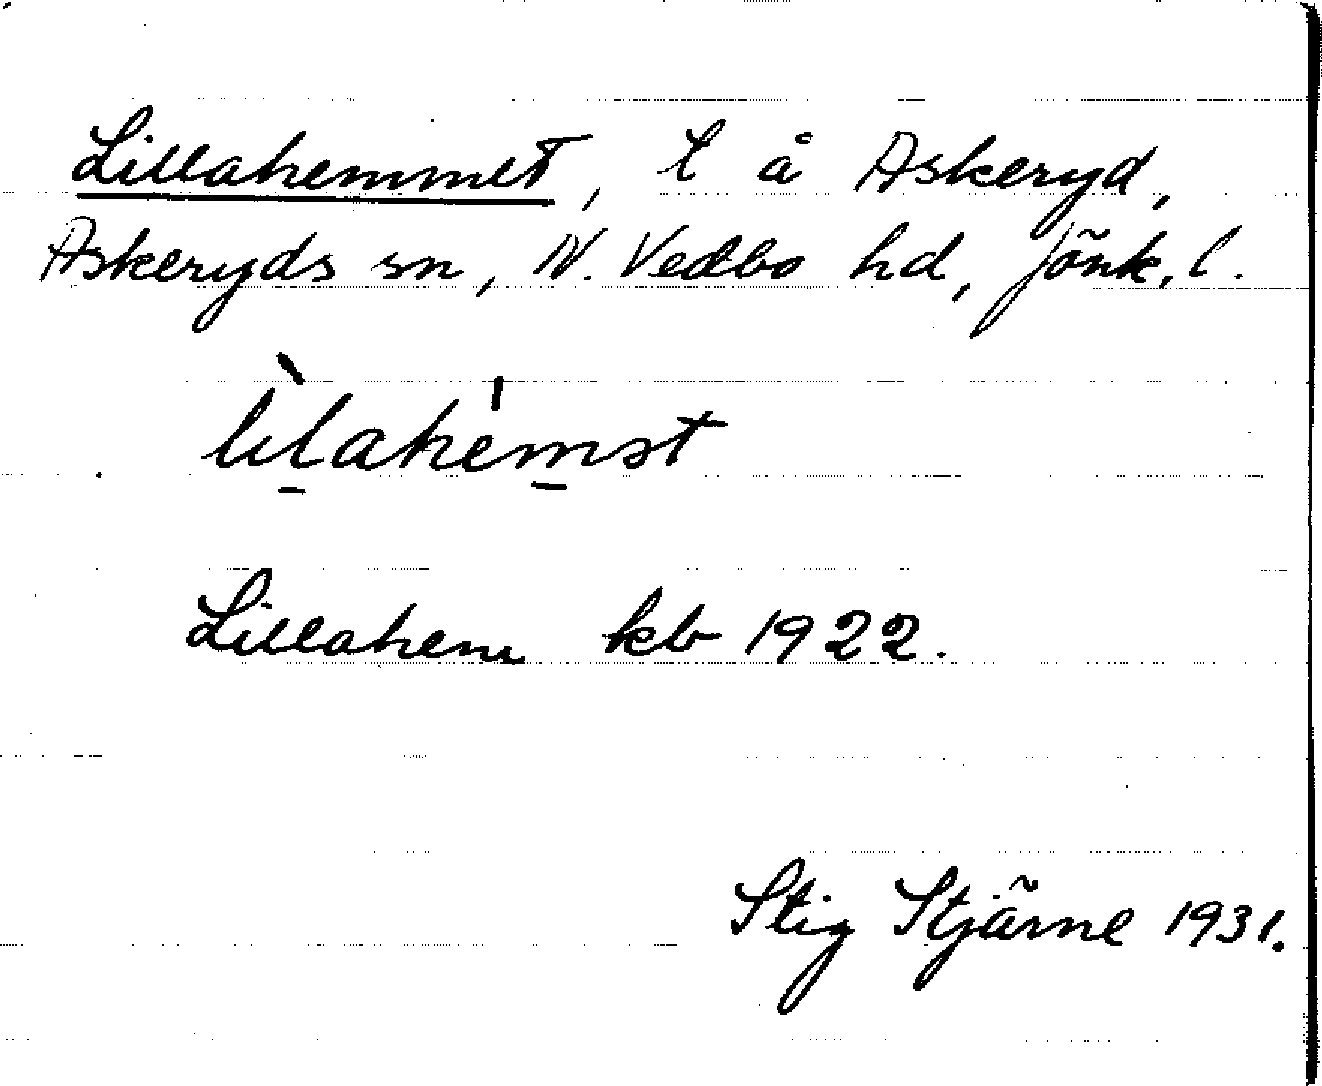 Lillahemmet, l å Askeryd,
Askeryds sn, N. Vedbo hd, Jönk. l.
lìlahémst
Lillahem kb 1922.
Stig Stjärne 1931.